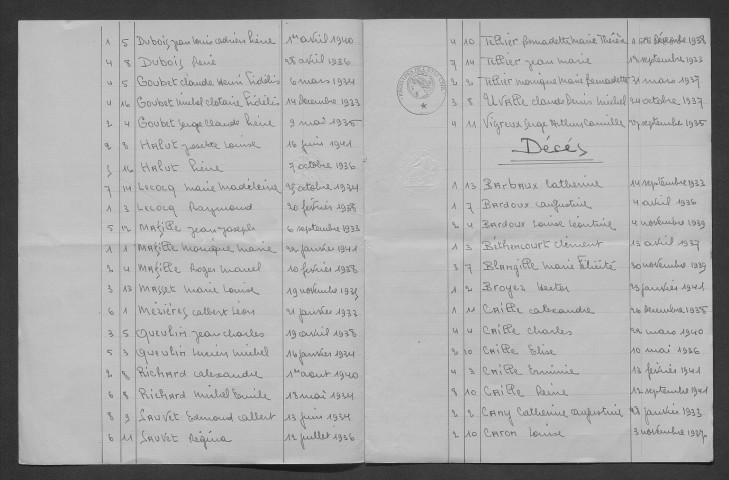 1 5 Dubois Jean Louis Adrien René 1er avril 1940
4 8 Dubois René 28 avril 1936
4 5 Goubet Claude Henri Fidélis 6 mars 1934
4 16 Goubet Michel Clotaire Fidélis 14 décembre 1933
2 4 Goubet Serge Claude René 9 mai 1935
8 8 Halut Josette Louise 16 juin 1941
3 16 Halut René 7 octobre 1936
7 14 Lecocq Marie Madeleine 25 octobre 1934
1 3 Lecocq Raymond 20 février 1938
5 12 Maille Jean Joseph 6 septembre 1933
1 1 Maille Monique Marie 22 janvier 1941
2 4 Maille Roger Marcel 10 février 1938
3 13 Masset Marie Louise 19 novembre
6 1 Mézières Albert Léon 21 janvier 1933
3 5 Queulin Jean Charles 19 avril 1938
5 3 Queulin Lucien Michel 16 janvier 1934
2 8 Richard Alexandre 1er août 1940
6 8 Richard Michel Emile 18 mai 1934
8 9 Sauvet Edmond Albert 13 juin 1934
6 11 Sauvet Régina 12 juillet 1936
4 10 Tellier Bernadette Marie Thérèse décembre 1938
7 14 Tellier Jean Marie 18 septembre 1933
2 2 Tellier Monique Marie Bernadette 31 mars 1937
3 8 Claude Denis Michel 24 octobre 1937
4 11 Vigreux Serge Arthur Camille 27 septembre 1935
Décés
1 13 Barbaux Catherine 14 septembre 1933
1 7 Bardoux Augustine 4 avril 1936
2 4 Bardoux Louise Léontine 4 novembre 1939
1 3 Béthencourt Clément 15 avril 1937
3 7 Blangille Marie Félicité 30 novembre 1939
1 2 Broyez Hector 23 janvier 1941
1 11 Caille Alexandre 26 décembre 1938
4 4 Caille Charles 22 mars 1940
2 10 Caille Elise 10 mai 1936
4 3 Caille Erminie 13 février 1941
8 10 Caille Reine 12 septembre 1941
2 2 Cany Catherine Augustine 28 janvier 1933
2 10 Caron Louise 3 novembre 1937